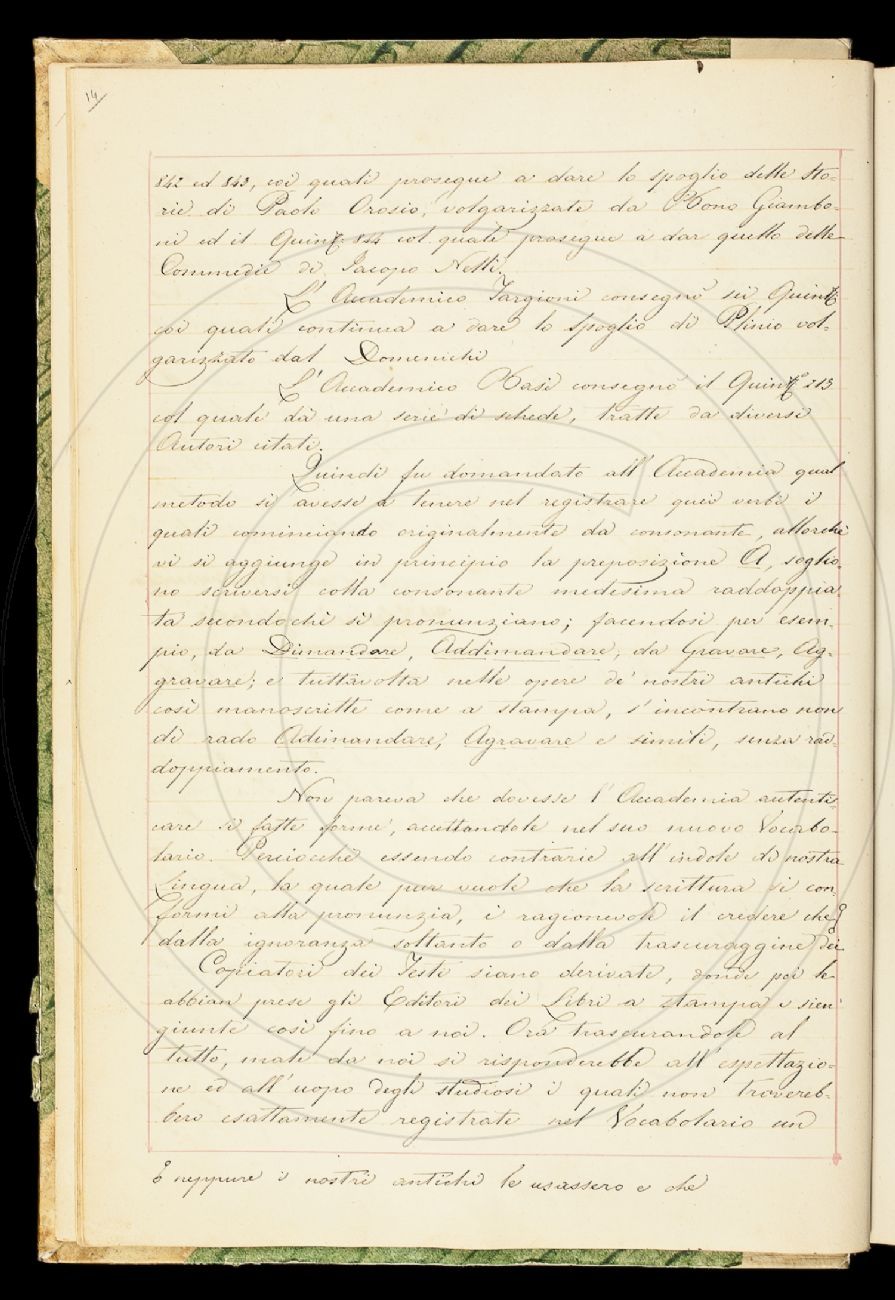 14
842 ed 843, coi quali prosegue a dare lo spoglio delle Sto-
rie di Paolo Orosio, volgarizzate da Bono Giambo-
ni ed il Quint.º 844 col quale prosegue a dar quello delle
Commedie di Iacopo Nelli.
L'Accademico Targioni consegnò sei Quint.i
coi quali continua a dare lo spoglio di Plinio vol-
garizzato dal Domenichi
L'Accademico Basi consegnò il Quint.º 213
col quale dà una serie di schede, tratte da diversi
Autori citati.
Quindi fu domandato all'Accademia qual
metodo si avesse a tenere nel registrare quei verbi i
quali cominciando originalmente da consonante, allorchè
vi si aggiunge in principio la preposizione A, soglio-
no scriversi colla consonante medesima raddoppia-
ta secondochè si pronunziano; facendosi per esem-
pio, da Dimandare, Addimandare; da Gravare, Ag-
gravare; e tuttavolta nelle opere de' nostri antichi
così manoscritte come a stampa, s'incontrano non
di rado Adimandare, Agravare e simili, senza rad-
doppiamento.
Non pareva che dovesse l'Accademia autenti-
care sì fatte forme, accettandole nel suo nuovo Vocabo-
lario. Perciocchè essendo contrarie all'indole di nostra
Lingua, la quale pur vuole che la scrittura si con
formi alla pronunzia, è ragionevole il credere che
dalla ignoranza soltanto o dalla trascuraggine dei
Copiatori dei Testi siano derivate, donde poi le
abbian prese gli Editori dei Libri a stampa e sien
giunte così fino a noi. Ora trascurandole al
tutto, male da noi si risponderebbe all'espettazio-
ne ed all'uopo degli studiosi i quali non trovereb-
bero esattamente registrate nel Vocabolario un
neppure i nostri antichi le usassero e che